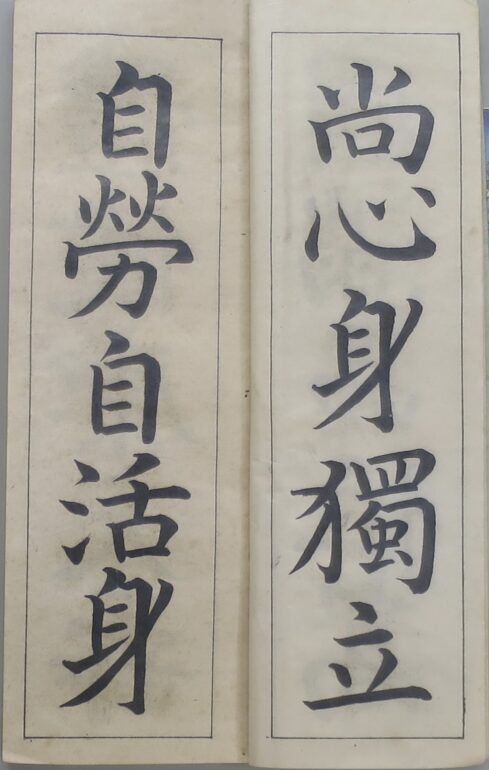 尚心身獨立
自勞自活身